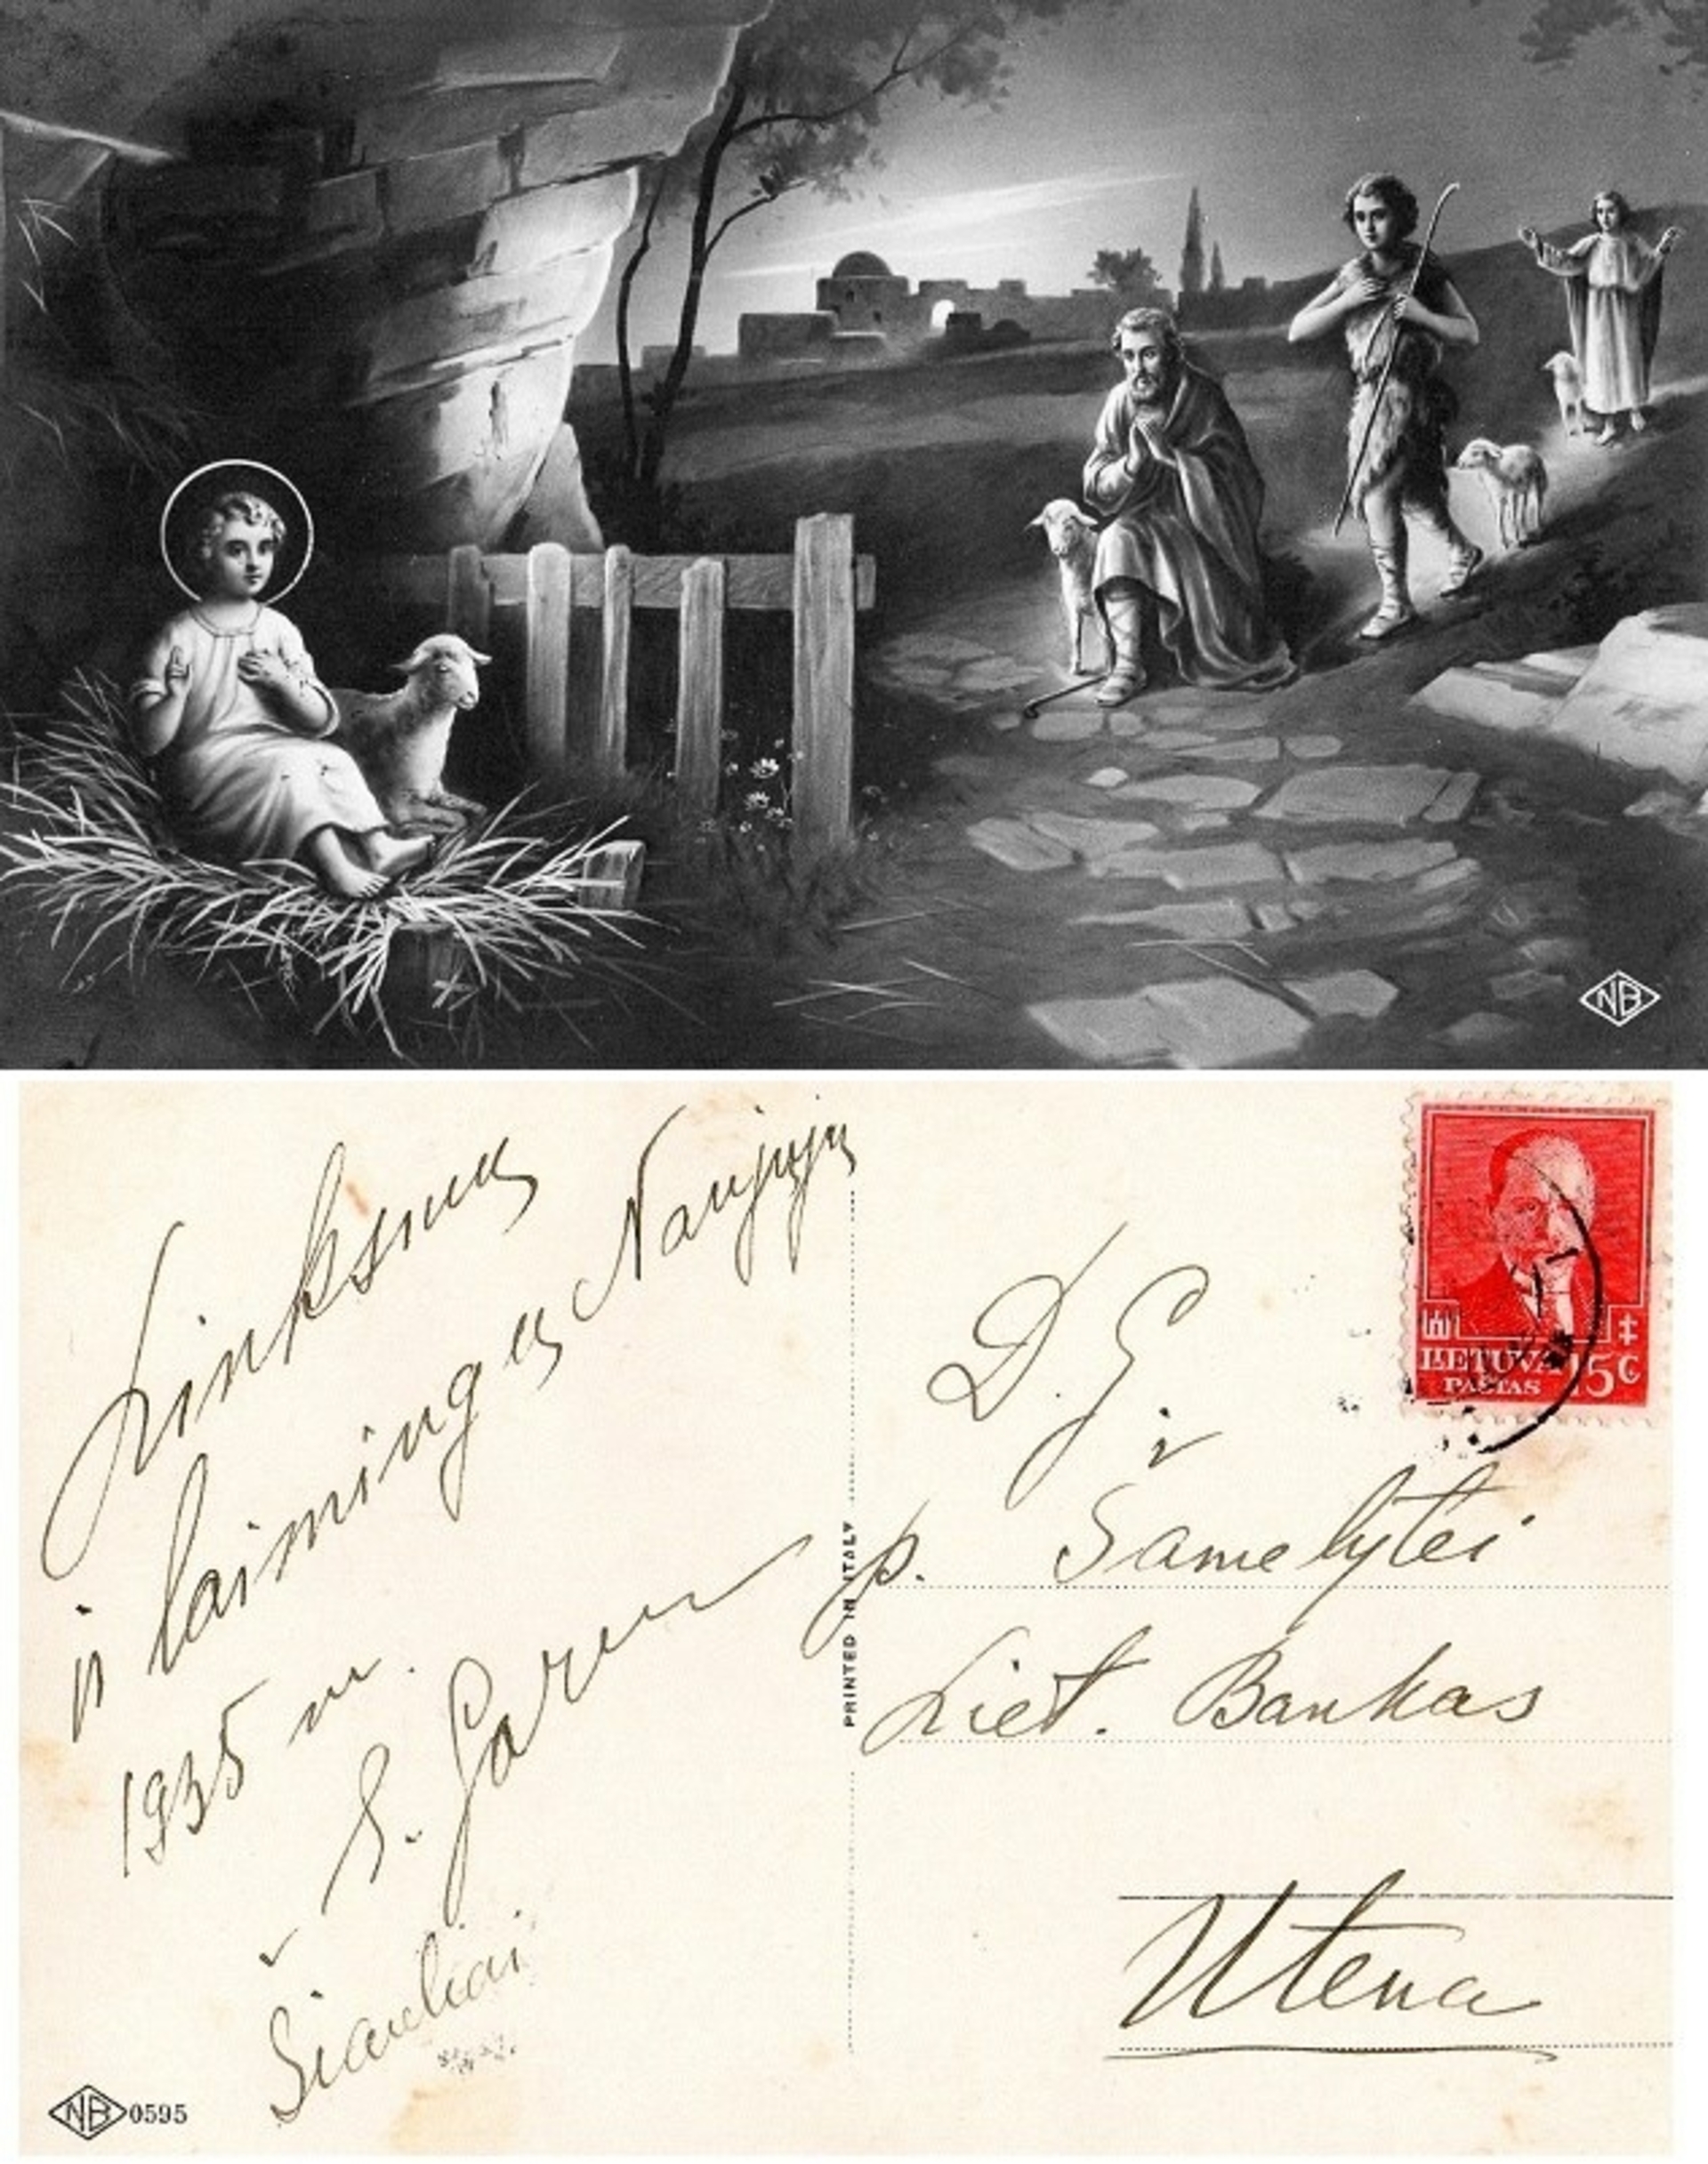 NB
Linksmų
ir laimingų Naujųjų
1935 m.
S.
Šiauliai
NB 0595
PRINTED IN ITALY
LIETUVA 15 C
PAŠTAS
D. G.
p. Šamelytei
Liet. Bankas
Utena